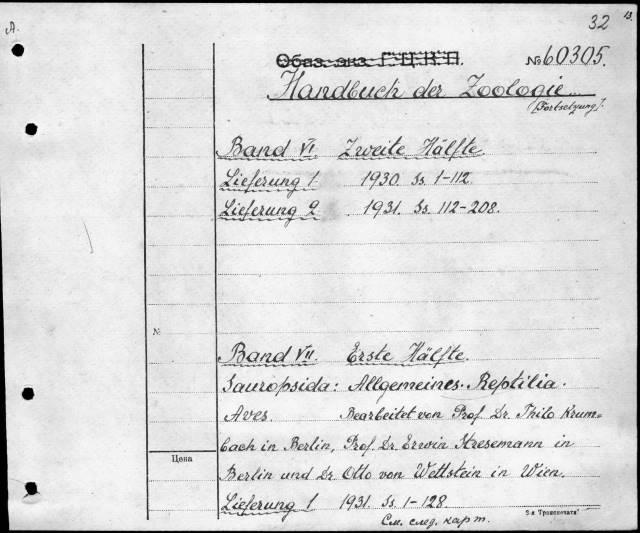 A.
32
13.
Обаз. экз. Г.Ц.К.П.
№ 60305.
Handbuch der Zoologie...
(Fortsetzung).
Band VI. Zweite Hälfte
Lieferung 1 1930. Ss. 1-112.
Lieferung 2 1931. Ss. 112-208.
№
Band VII. Erste Hälfte.
Sauropsida: Allgemeines. Reptilia.
Aves. Bearbeitet von Prof. Dr. Thilo Krum-
bach in Berlin, Prof. Dr. Erwin Stresemann in
Цена
Berlin und Dr. Otto von Wettstein in Wien.
Lieferung 1 1931. Ss. 1-128.
5-я Транспечати
См. след. карт.